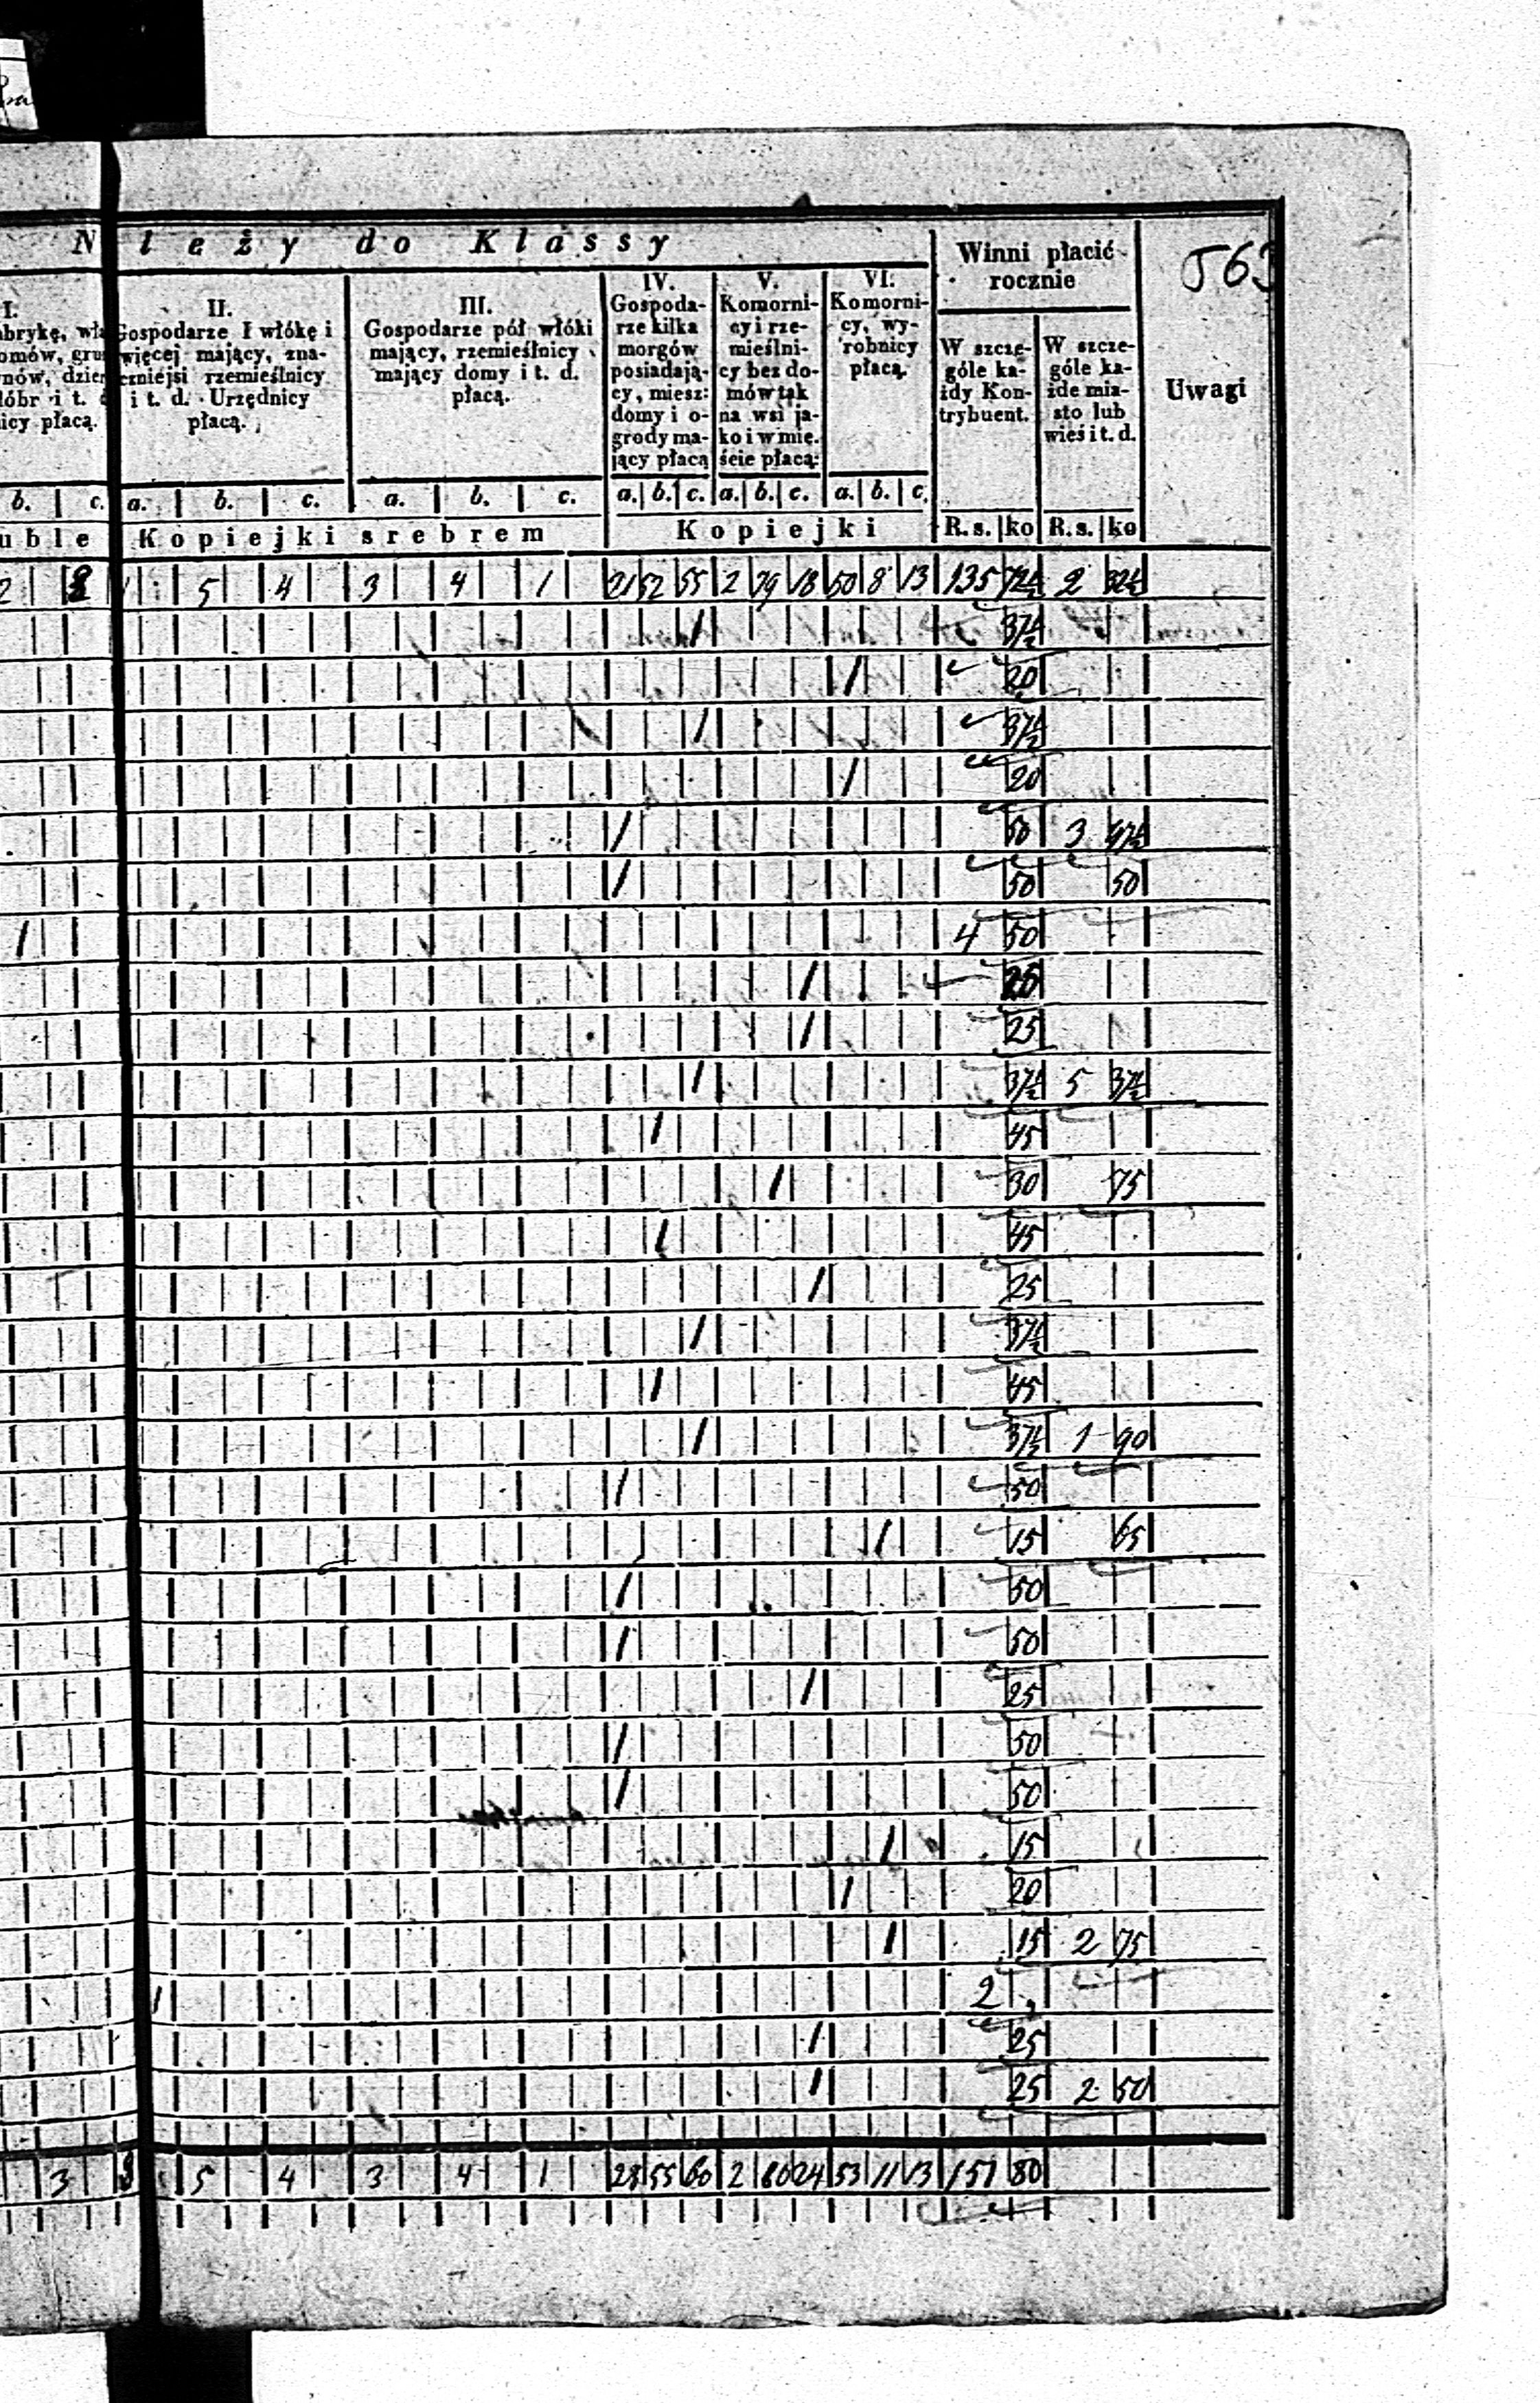 563
N leży do Klassy
Winni płacić rocznie
Uwagi
I.
brykę, wła
omów, gru
nów, dzier
óbr i t. d
icy płacą.
II.
Gospodarze I włókę i
więcej mający, zna-
czniejsi rzemieślnicy
i t. d. Urzędnicy
płacą.
III.
Gospodarze pół włóki
mający, rzemieślnicy
mający domy i t. d.
płacą.
IV.
Gospoda-
rze kilka
morgów
posiadają-
cy, miesz:
domy i o-
grody ma-
jący płacą
V.
Komorni-
cy i rze-
mieślni-
cy bez do-
mów tak
na wsi ja-
ko i w mie.
ście płacą:
VI.
Komorni-
cy, wy-
robnicy
płacą.
W szcze-
góle ka-
żdy Kon-
trybuent.
W szcze-
góle ka-
żde mia-
sto lub
wieś i t. d.
b. c. a. b. c. a. b. c. a. b. c. a. b. c. a. b. c.
uble Kopiejki srebrem Kopiejki R.s. ko R.s. ko
2 8 1 5 4 3 4 1 21 52 55 2 79 18 50 8 13 135 72½ 2 32½
1 37½
1 20
1 37½
1 20
1 50 3 97½
1 50 50
1 4 50
1 25
1 25
1 37½ 5 37½
1 45
1 30 75
1 45
1 25
1 37½
1 45
1 37½ 1 90
1 50
1 15 65
1 50
1 50
1 25
1 50
1 50
1 15
1 20
1 15 2 75
1 2 "
1 25
1 25 2 50
3 8 5 4 3 4 1 28 55 60 2 80 24 53 11 13 151 80